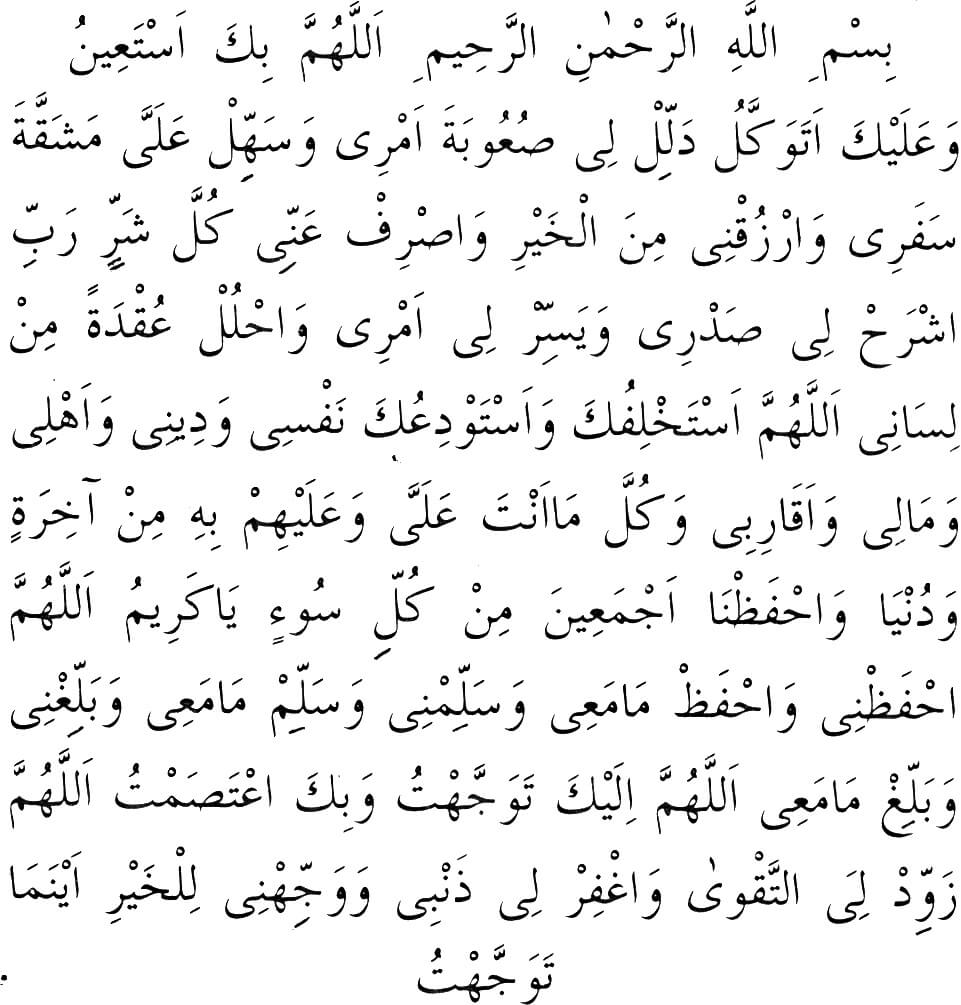 بِسْمِ اللَّهِ الرَّحْمٰنِ الرَّحِيمِ اَللَّهُمَّ بِكَ اَسْتَعِينُ
وَعَلَيْكَ اَتَوَكَّلُ دَلِّلْ لِى صُعُوبَةَ اَمْرِى وَسَهِّلْ عَلَىَّ مَشَقَّةَ
سَفَرِى وَارْزُقْنِى مِنَ الْخَيْرِ وَاصْرِفْ عَنِّى كُلَّ شَرٍّ رَبِّ
اشْرَحْ لِى صَدْرِى وَيَسِّرْ لِى اَمْرِى وَاحْلُلْ عُقْدَةً مِنْ
لِسَانِى اَللَّهُمَّ اَسْتَخْلِفُكَ وَاَسْتَوْدِعُكَ نَفْسِى وَدِينِى وَاَهْلِى
وَمَالِى وَاَقَارِبِى وَكُلَّ مَااَنْتَ عَلَىَّ وَعَلَيْهِمْ بِهِ مِنْ آخِرَةٍ
وَدُنْيَا وَاحْفَظْنَا اَجْمَعِينَ مِنْ كُلِّ سُوءٍ يَاكَرِيمُ اَللَّهُمَّ
احْفَظْنِى وَاحْفَظْ مَامَعِى وَسَلِّمْنِى وَسَلِّمْ مَامَعِى وَبَلِّغْنِى
وَبَلِّغْ مَامَعِى اَللَّهُمَّ اِلَيْكَ تَوَجَّهْتُ وَبِكَ اعْتَصَمْتُ اَللَّهُمَّ
زَوِّدْ لِىَ التَّقْوٰى وَاغْفِرْ لِى ذَنْبِى وَوَجِّهْنِى لِلْخَيْرِ اَيْنَمَا
تَوَجَّهْتُ